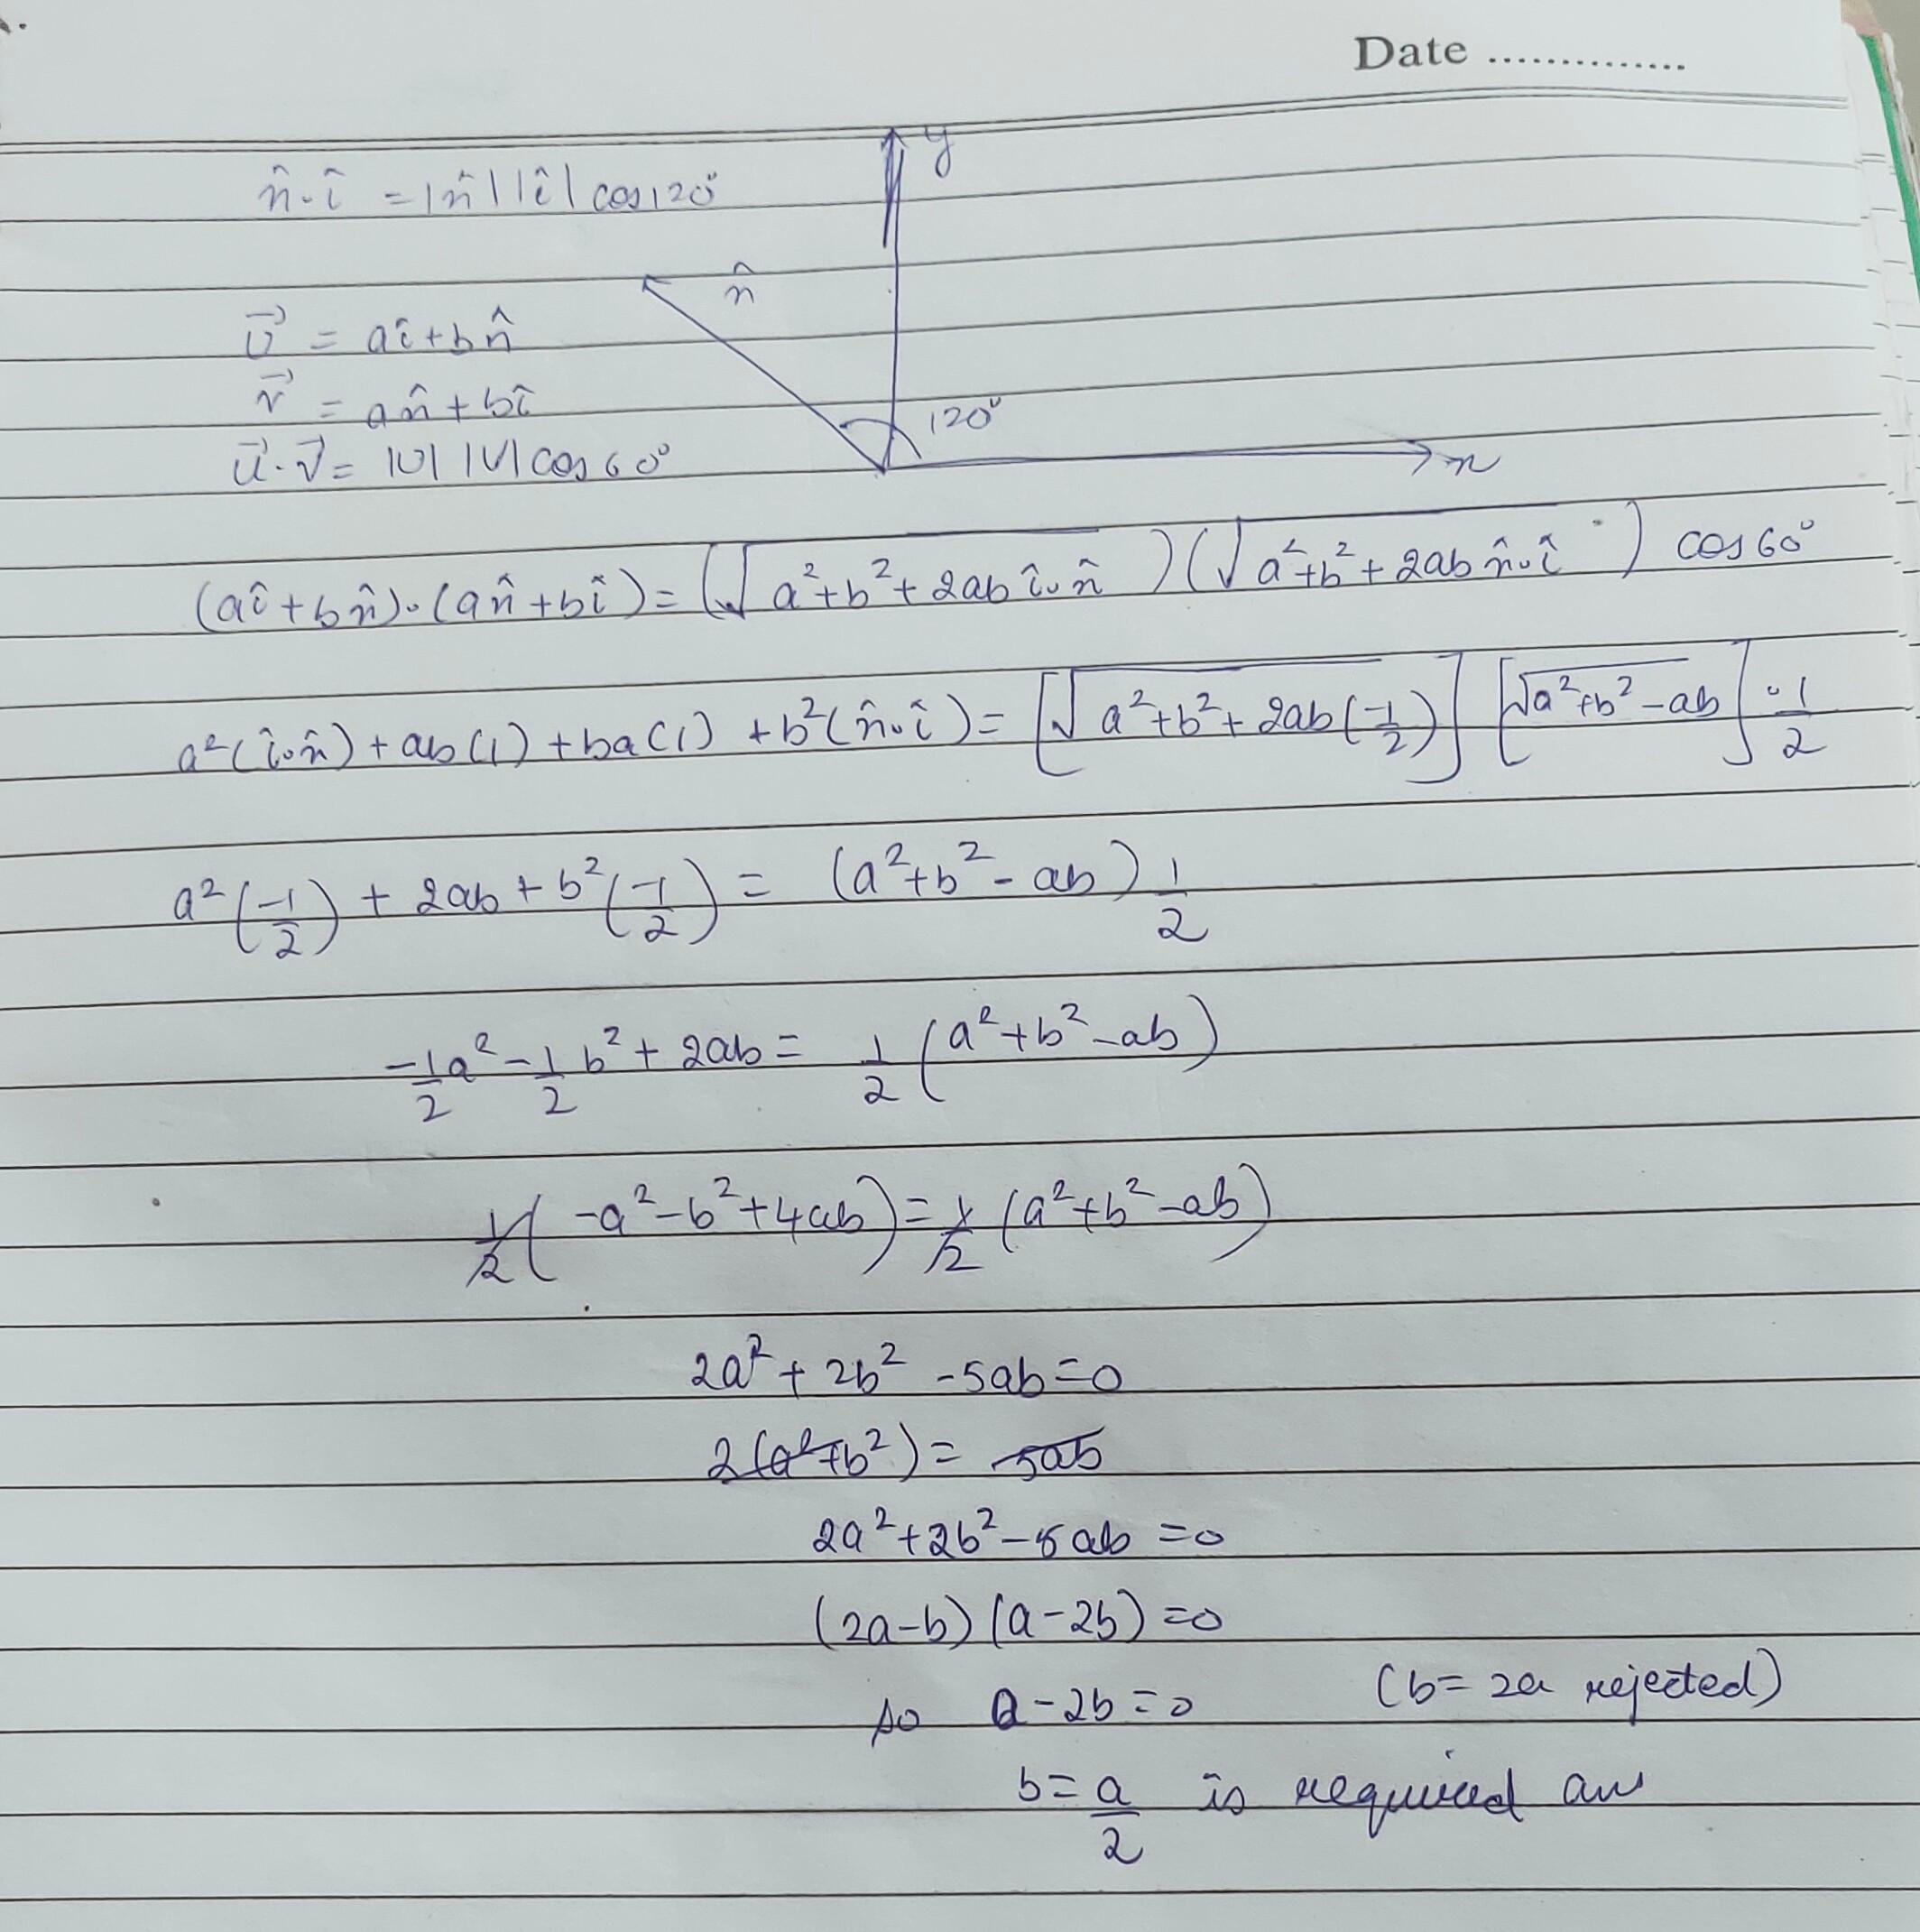 Date ..............
y
n̂·î = |n̂||î| cos120°
n̂
U⃗ = aî+bn̂
v⃗ = an̂+bî
120°
u⃗·v⃗ = |U| |V| cos60°
x
(aî+bn̂)·(an̂+bî) = (√a²+b²+2ab î·n̂)(√a²+b²+2ab n̂·î) cos60°
a²(î·n̂)+ab(1)+ba(1)+b²(n̂·î) = [√a²+b²+2ab(-1/2)] [√a²+b²-ab]·1/2
a²(-1/2) + 2ab + b²(-1/2) = (a²+b²-ab) 1/2
-1/2 a² - 1/2 b² + 2ab = 1/2 (a²+b²-ab)
1/2(-a²-b²+4ab) = 1/2 (a²+b²-ab)
2a² + 2b² - 5ab = 0
2(a²+b²) = 5ab
2a²+2b²-5ab = 0
(2a-b)(a-2b) = 0
so a-2b = 0 (b = 2a rejected)
b = a/2 is required ans